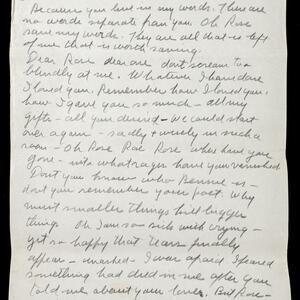 Because you live in my words. There are
no words separate from you. Oh Rose
save my words. They are all that is left
of me that is worth saving.
Dear Rose dear one don't scream so
blindly at me. Whatever I have done
I loved you. Remember how I loved you,
how I gave you so much – all my
gifts – all you desired – we could start
over again – sadly + wisely in such a
room – Oh Rose Rae Rose where have you
gone – into what rages have you vanished
Don't you know who Bennie is –
don't you remember your poet. Why
must smaller things kill bigger
things. Oh I am so sick with crying –
yet so happy that tears finally
appear – I was afraid I feared
something had died in me after you
told me about your lover. But Rose –